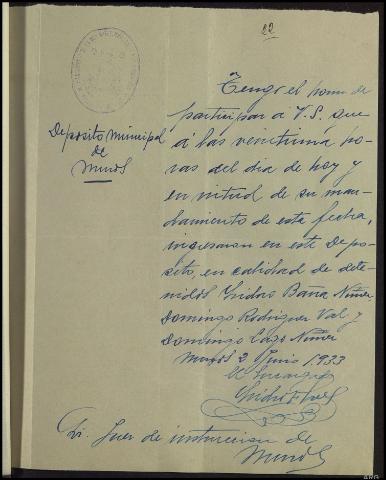 22
Deposito Municipal
de
Muros
Tengo el honor de
participar á V.S. que
á las veintiuna ho-
ras del dia de hoy y
en virtud de su man-
damiento de esta fecha,
ingresaron en este Depo-
sito, en calidad de dete-
nidos Isidro Baña Núñer
Domingo Rodriguer Val y
Domingo Lago Núñer
Muros 2 Junio 1933
El Encargado
Sr. Juer de instruccion de
Muros